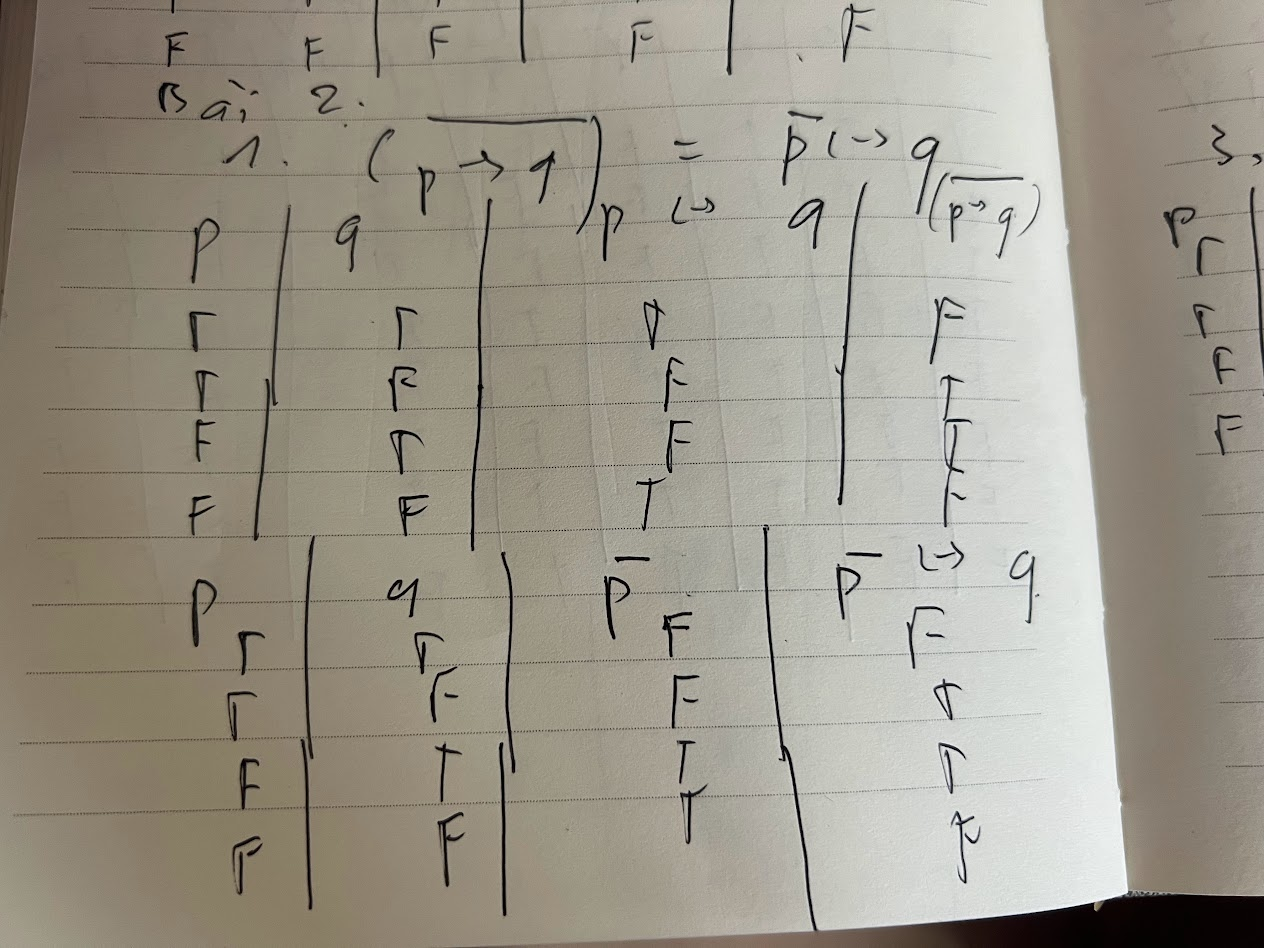 F F | F | F | F
Bài 2.
1. (p̅ ̅→̅ ̅q̅) = p̅ ↔ q
p | q | p ↔ q | (p̅ ̅→̅ ̅q̅)
T | T | T | F
T | F | F | T
F | T | F | T
F | F | T | F
p | q | p̅ | p̅ ↔ q
T | T | F | F
T | F | F | T
F | T | T | T
F | F | T | F
3,
P
T
T
F
F